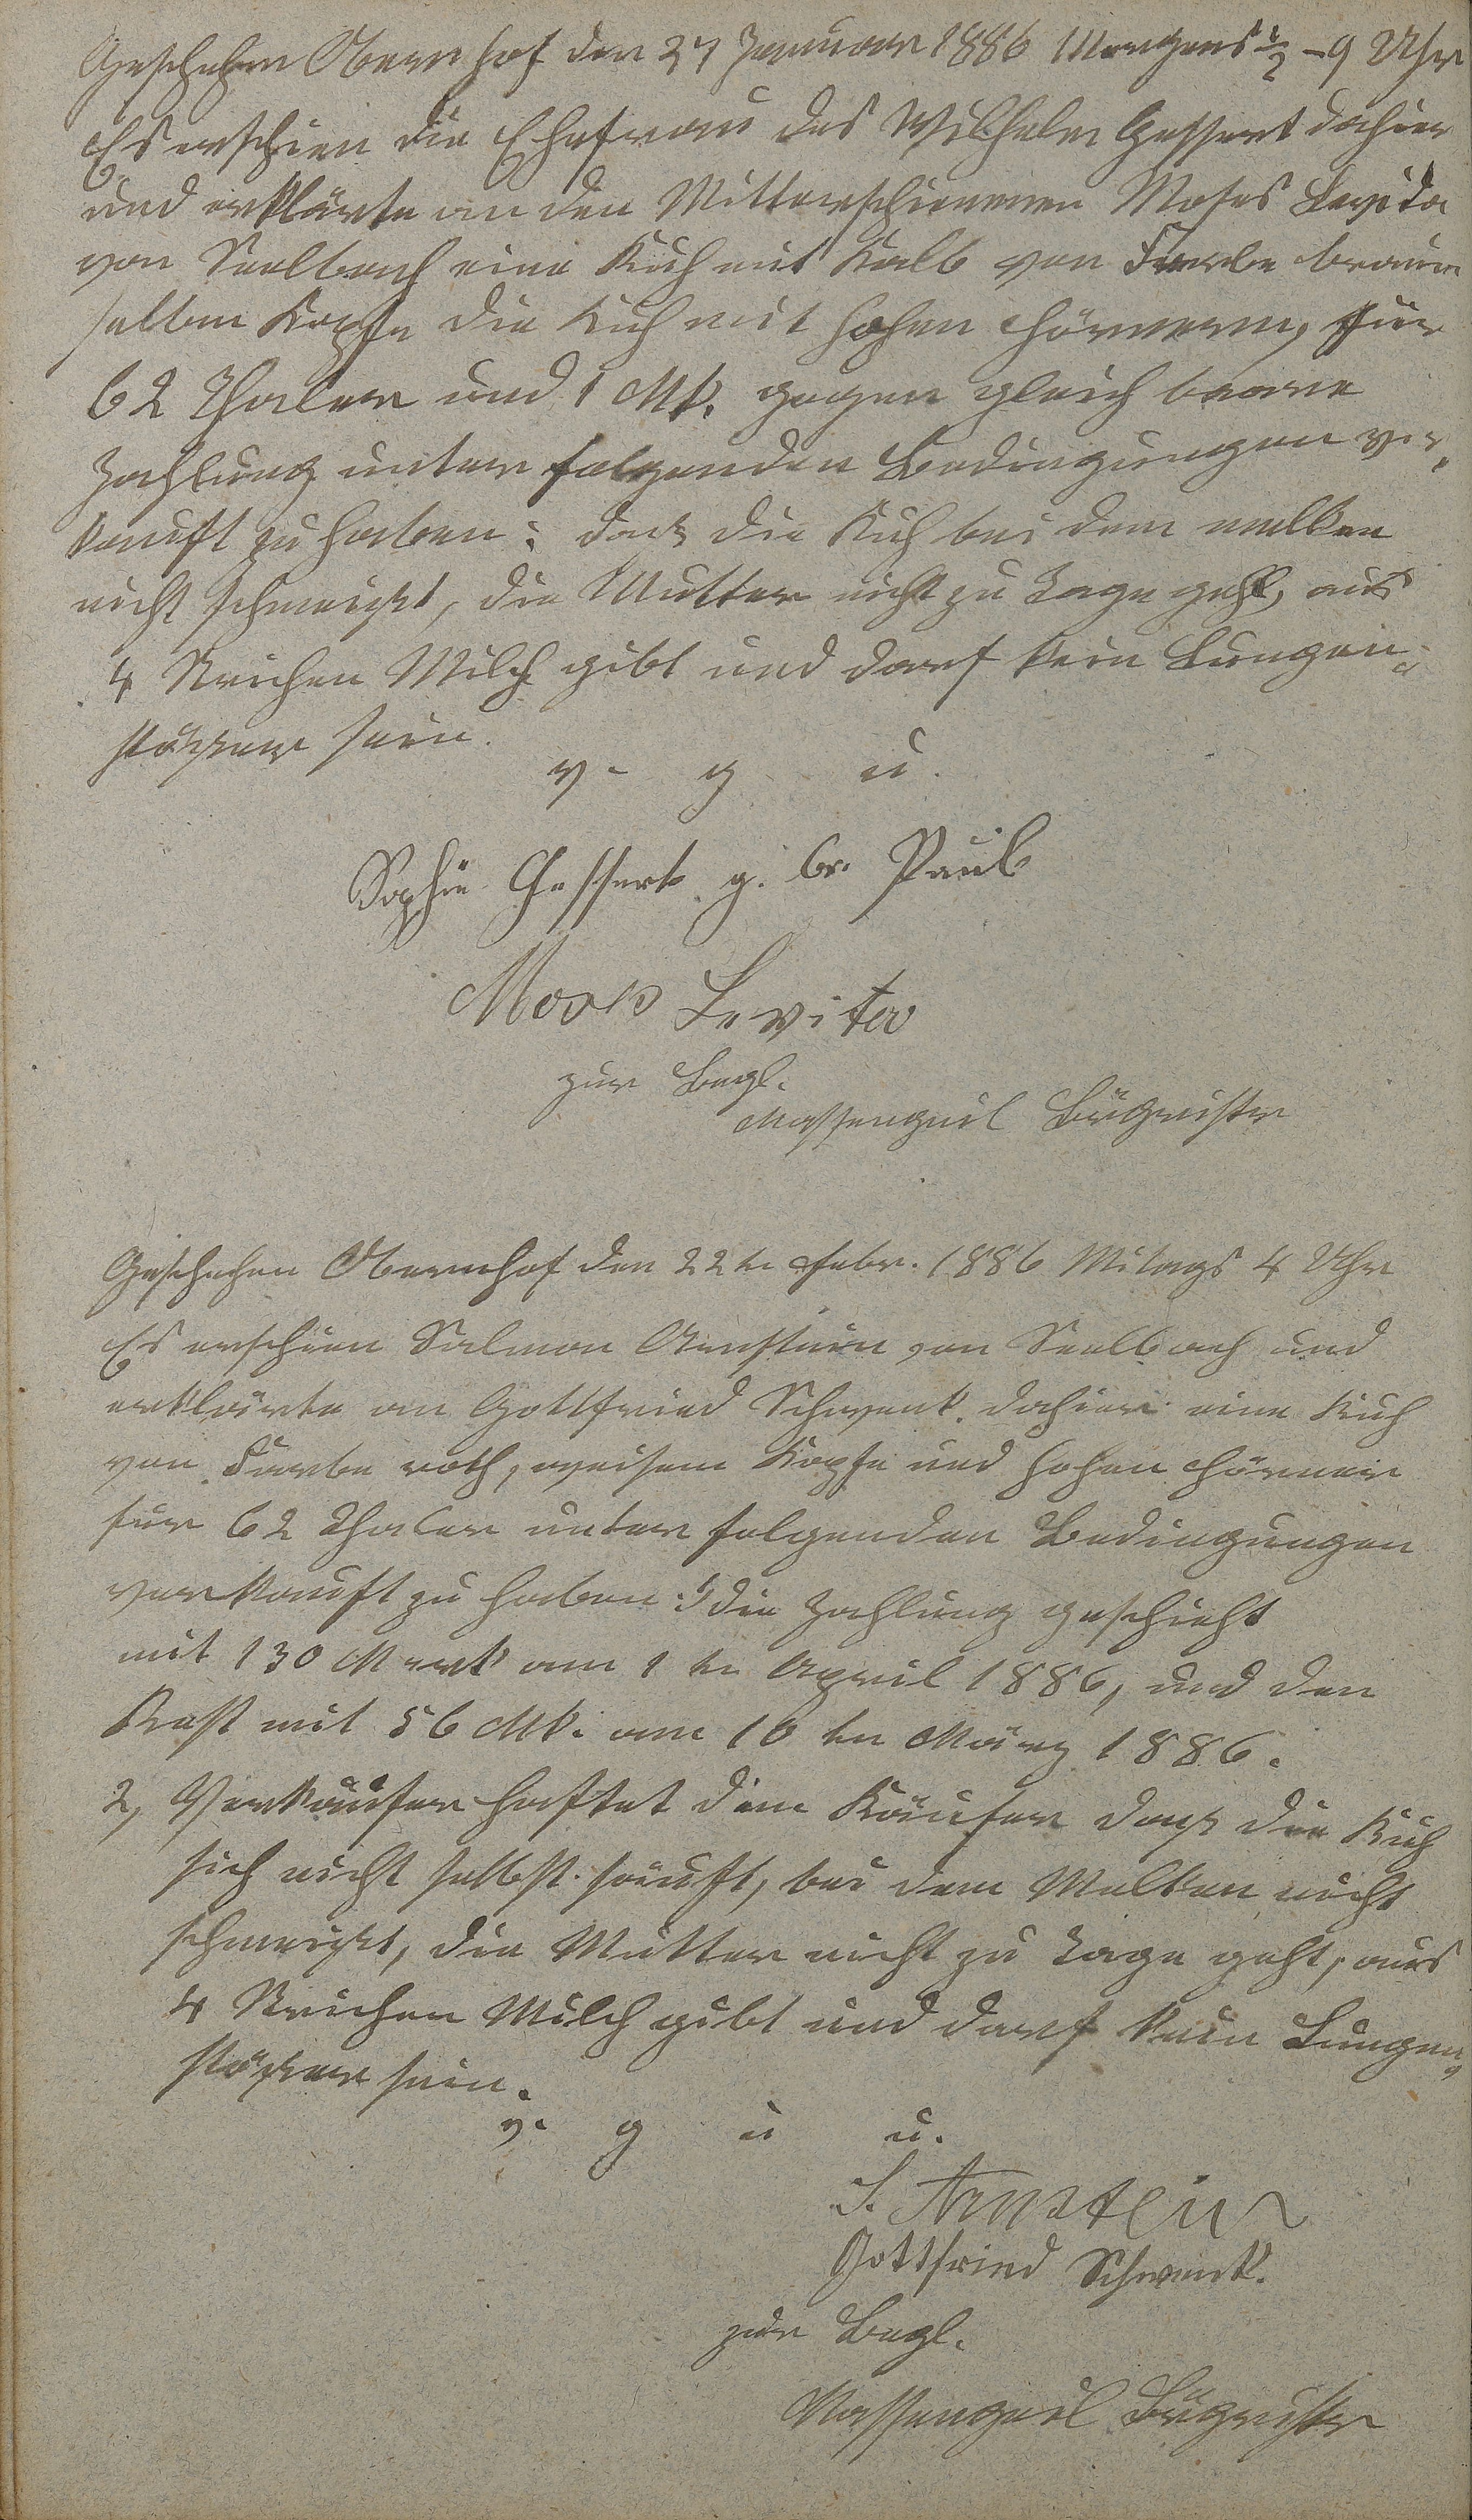 Geschehen Obernhof den 27 Januar 1886 Morgens ½-9 Uhr
Es erschien die Ehefrau des Wilhelm Gessert dahier
und erklärte an den Mitterschienenen Moses Levita
von Seelbach eine Kuh mit Kalb von Farbe braun
falben Kopfe die Kuh mit hohen Hörnern, für
62 Thaler und 1 Mk. gegen gleich baare
Zahlung unter folgenden Bedingungen ver-
kauft zu haben: daß die Kuh bei dem melken
nicht schmeißt, die Mutter nicht zu Tage geht, aus
4 Strichen Milch gibt und darf kein Lungen-
stößer sein.
v. g u.
Sophie Gessert g. br. Paul
Moses Levita
zur Begl.
Massengeil Bügrmstr
Geschehen Obernhof den 22tn Febr. 1886 Mitags 4 Uhr
Es erschien Salmon Arnstein von Seelbach und
erklärte an Gottfried Schwenk dahier eine Kuh
von Farbe roth, weisem Kopfe und hohen Hörner
für 62 Thaler unter folgenden Bedingungen
verkauft zu haben: 1, die Zahlung geschieht
mit 130 Mark am 1 tn April 1886, und den
Rest mit 56 Mk. am 10 tn März 1886.
2, Verkäufer haftet dem Käufer daß die Kuh
sich nicht selbst säuft, bei dem Melken nicht
schmeißt, die Mutter nicht zu Tage geht, aus
4 Strichen Milch gibt und darf kein Lungen-
stößer sein.
v. g u u.
S. Arnstein
Gottfried Schwenk.
zur Begl.
Massengeil Bügrmstr